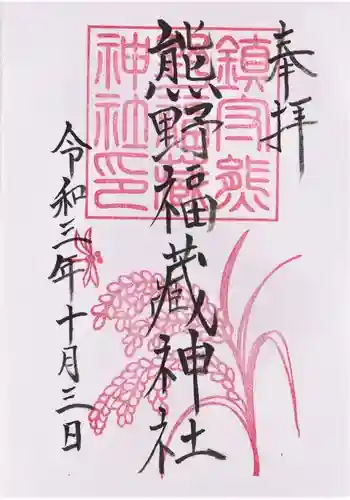 奉拝
熊野福藏神社
令和三年十月三日
鎮守熊野福藏神社印